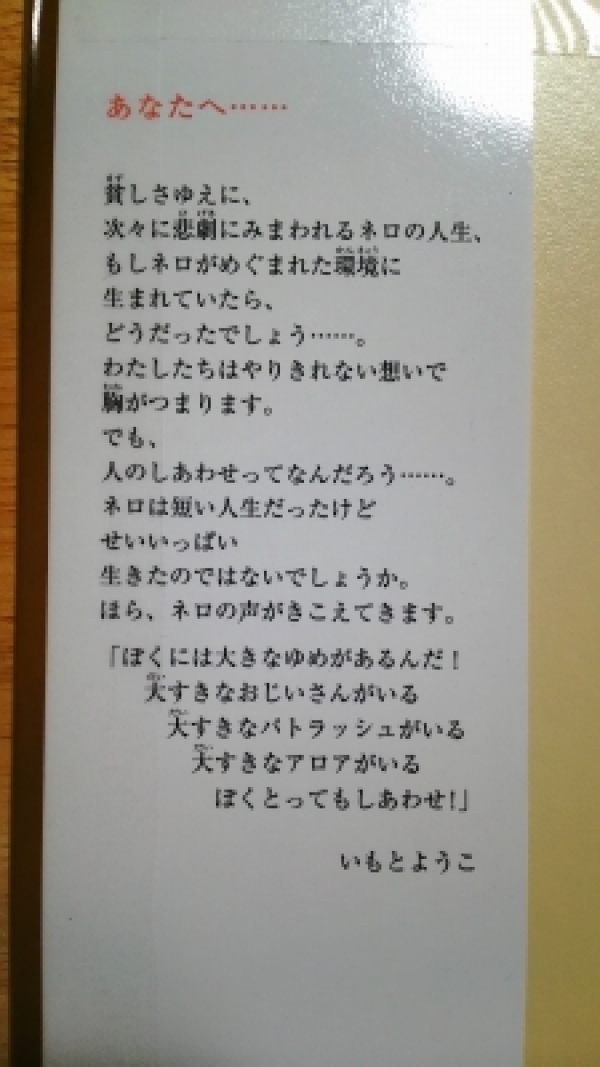 あなたへ……
貧しさゆえに、
次々に悲劇にみまわれるネロの人生、
もしネロがめぐまれた環境に
生まれていたら、
どうだったでしょう……。
わたしたちはやりきれない想いで
胸がつまります。
でも、
人のしあわせってなんだろう……。
ネロは短い人生だったけど
せいいっぱい
生きたのではないでしょうか。
ほら、ネロの声がきこえてきます。
「ぼくには大きなゆめがあるんだ！
大すきなおじいさんがいる
大すきなパトラッシュがいる
大すきなアロアがいる
ぼくとってもしあわせ！」
いもとようこ